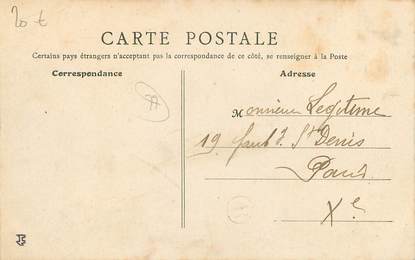 20 €
CARTE POSTALE
Certains pays étrangers n'acceptant pas la correspondance de ce côté, se renseigner à la Poste
Correspondance
Adresse
Monsieur Legitime
19 faubg St Denis
Paris
Xe